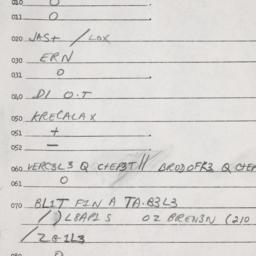 010 0
011 0
020 JAS+ /LOX
030 ERN
031 0
040 DI O.T
050 KRECALAX
051 +
052 —
060 VERC3L3 Q CHEP3T // BRODOFK3 Q CHEP
061 0
070 BL1T F1N A TA.B3L3
/)LBAP1S OZ BREN3N (210
/Z@1L3
0